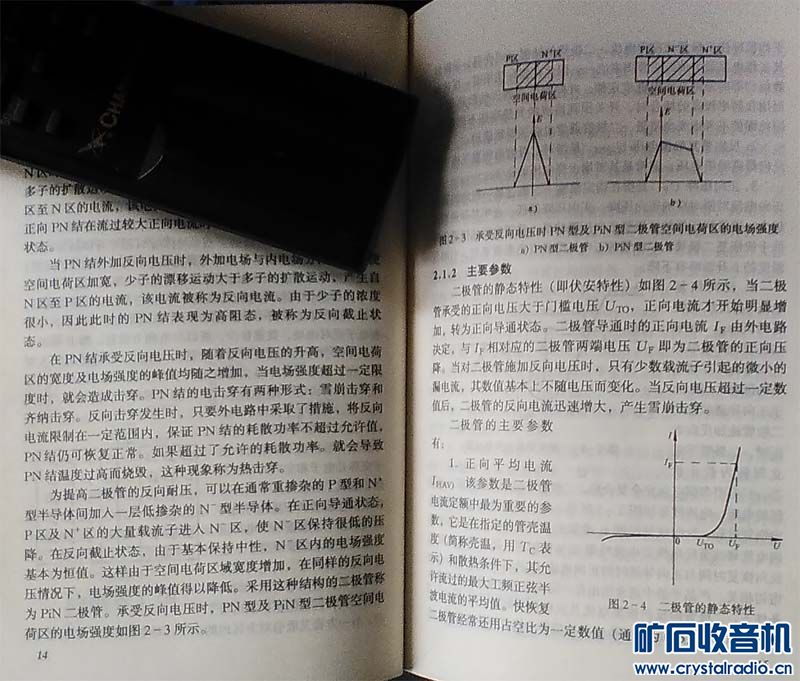 CHA
多子的扩散运
区至N区的电流，该电
正向PN结在流过较大正向电流时
状态。
当PN结外加反向电压时，外加电场与内电场方
空间电荷区加宽，少子的漂移运动大于多子的扩散运动，产生自
N区至P区的电流，该电流被称为反向电流。由于少子的浓度
很小，因此此时的PN结表现为高阻态，被称为反向截止状
态。
在PN结承受反向电压时，随着反向电压的升高，空间电荷
区的宽度及电场强度的峰值均随之增加，当电场强度超过一定限
度时，就会造成击穿。PN结的电击穿有两种形式：雪崩击穿和
齐纳击穿。反向击穿发生时，只要外电路中采取了措施，将反向
电流限制在一定范围内，保证PN结的耗散功率不超过允许值，
PN结仍可恢复正常。如果超过了允许的耗散功率。就会导致
PN结温度过高而烧毁，这种现象称为热击穿。
为提高二极管的反向耐压，可以在通常重掺杂的P型和N⁺
型半导体间加入一层低掺杂的N⁻型半导体。在正向导通状态，
P区及N⁺区的大量载流子进入N⁻区，使N⁻区保持很低的压
降。在反向截止状态，由于基本保持中性，N⁻区内的电场强度
基本为恒值。这样由于空间电荷区域宽度增加，在同样的反向电
压情况下，电场强度的峰值得以降低。采用这种结构的二极管称
为PiN二极管。承受反向电压时，PN型及PiN型二极管空间电
荷区的电场强度如图2-3所示。
14
P区 N⁺区
空间电荷区
E
a)
P区 N⁻区 N⁺区
空间电荷区
E
b)
图2-3 承受反向电压时PN型及PiN型二极管空间电荷区的电场强度
a) PN型二极管 b) PiN型二极管
2.1.2 主要参数
二极管的静态特性（即伏安特性）如图2-4所示，当二极
管承受的正向电压大于门槛电压U_TO，正向电流才开始明显增
加，转为正向导通状态。二极管导通时的正向电流I_F由外电路
决定，与I_F相对应的二极管两端电压U_F即为二极管的正向压
降。当对二极管施加反向电压时，只有少数载流子引起的微小的
漏电流，其数值基本上不随电压而变化。当反向电压超过一定数
值后，二极管的反向电流迅速增大，产生雪崩击穿。
二极管的主要参数
有：
1. 正向平均电流
I_F(AV) 该参数是二极管
电流定额中最为重要的参
数，它是在指定的管壳温
度（简称壳温，用T_C表
示）和散热条件下，其允
许流过的最大工频正弦半
波电流的平均值。快恢复
二极管经常还用占空比为一定数值（通
I
I_F
0 U_TO U_F U
图2-4 二极管的静态特性
矿石收音机
www.crystalradio.cn